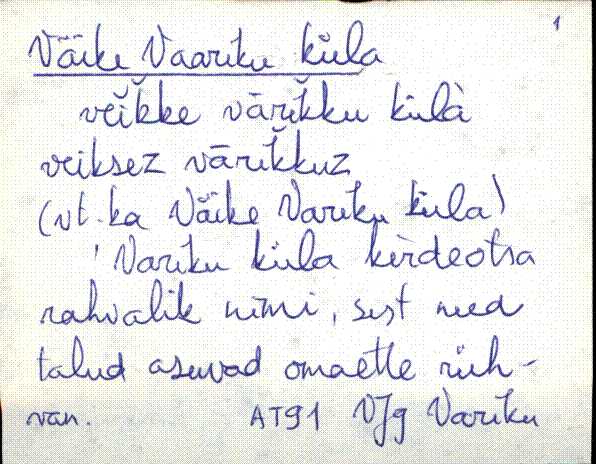 1
Väike Vaariku küla
veĭkke vārĭkku külà
veiksez vārĭkkuz
(vt. ka Väike Variku küla)
' Variku küla kèrdeotsa
rahvalik nimi, sest need
talud asuvad omaette rüh-
van. AT91 VJg Variku